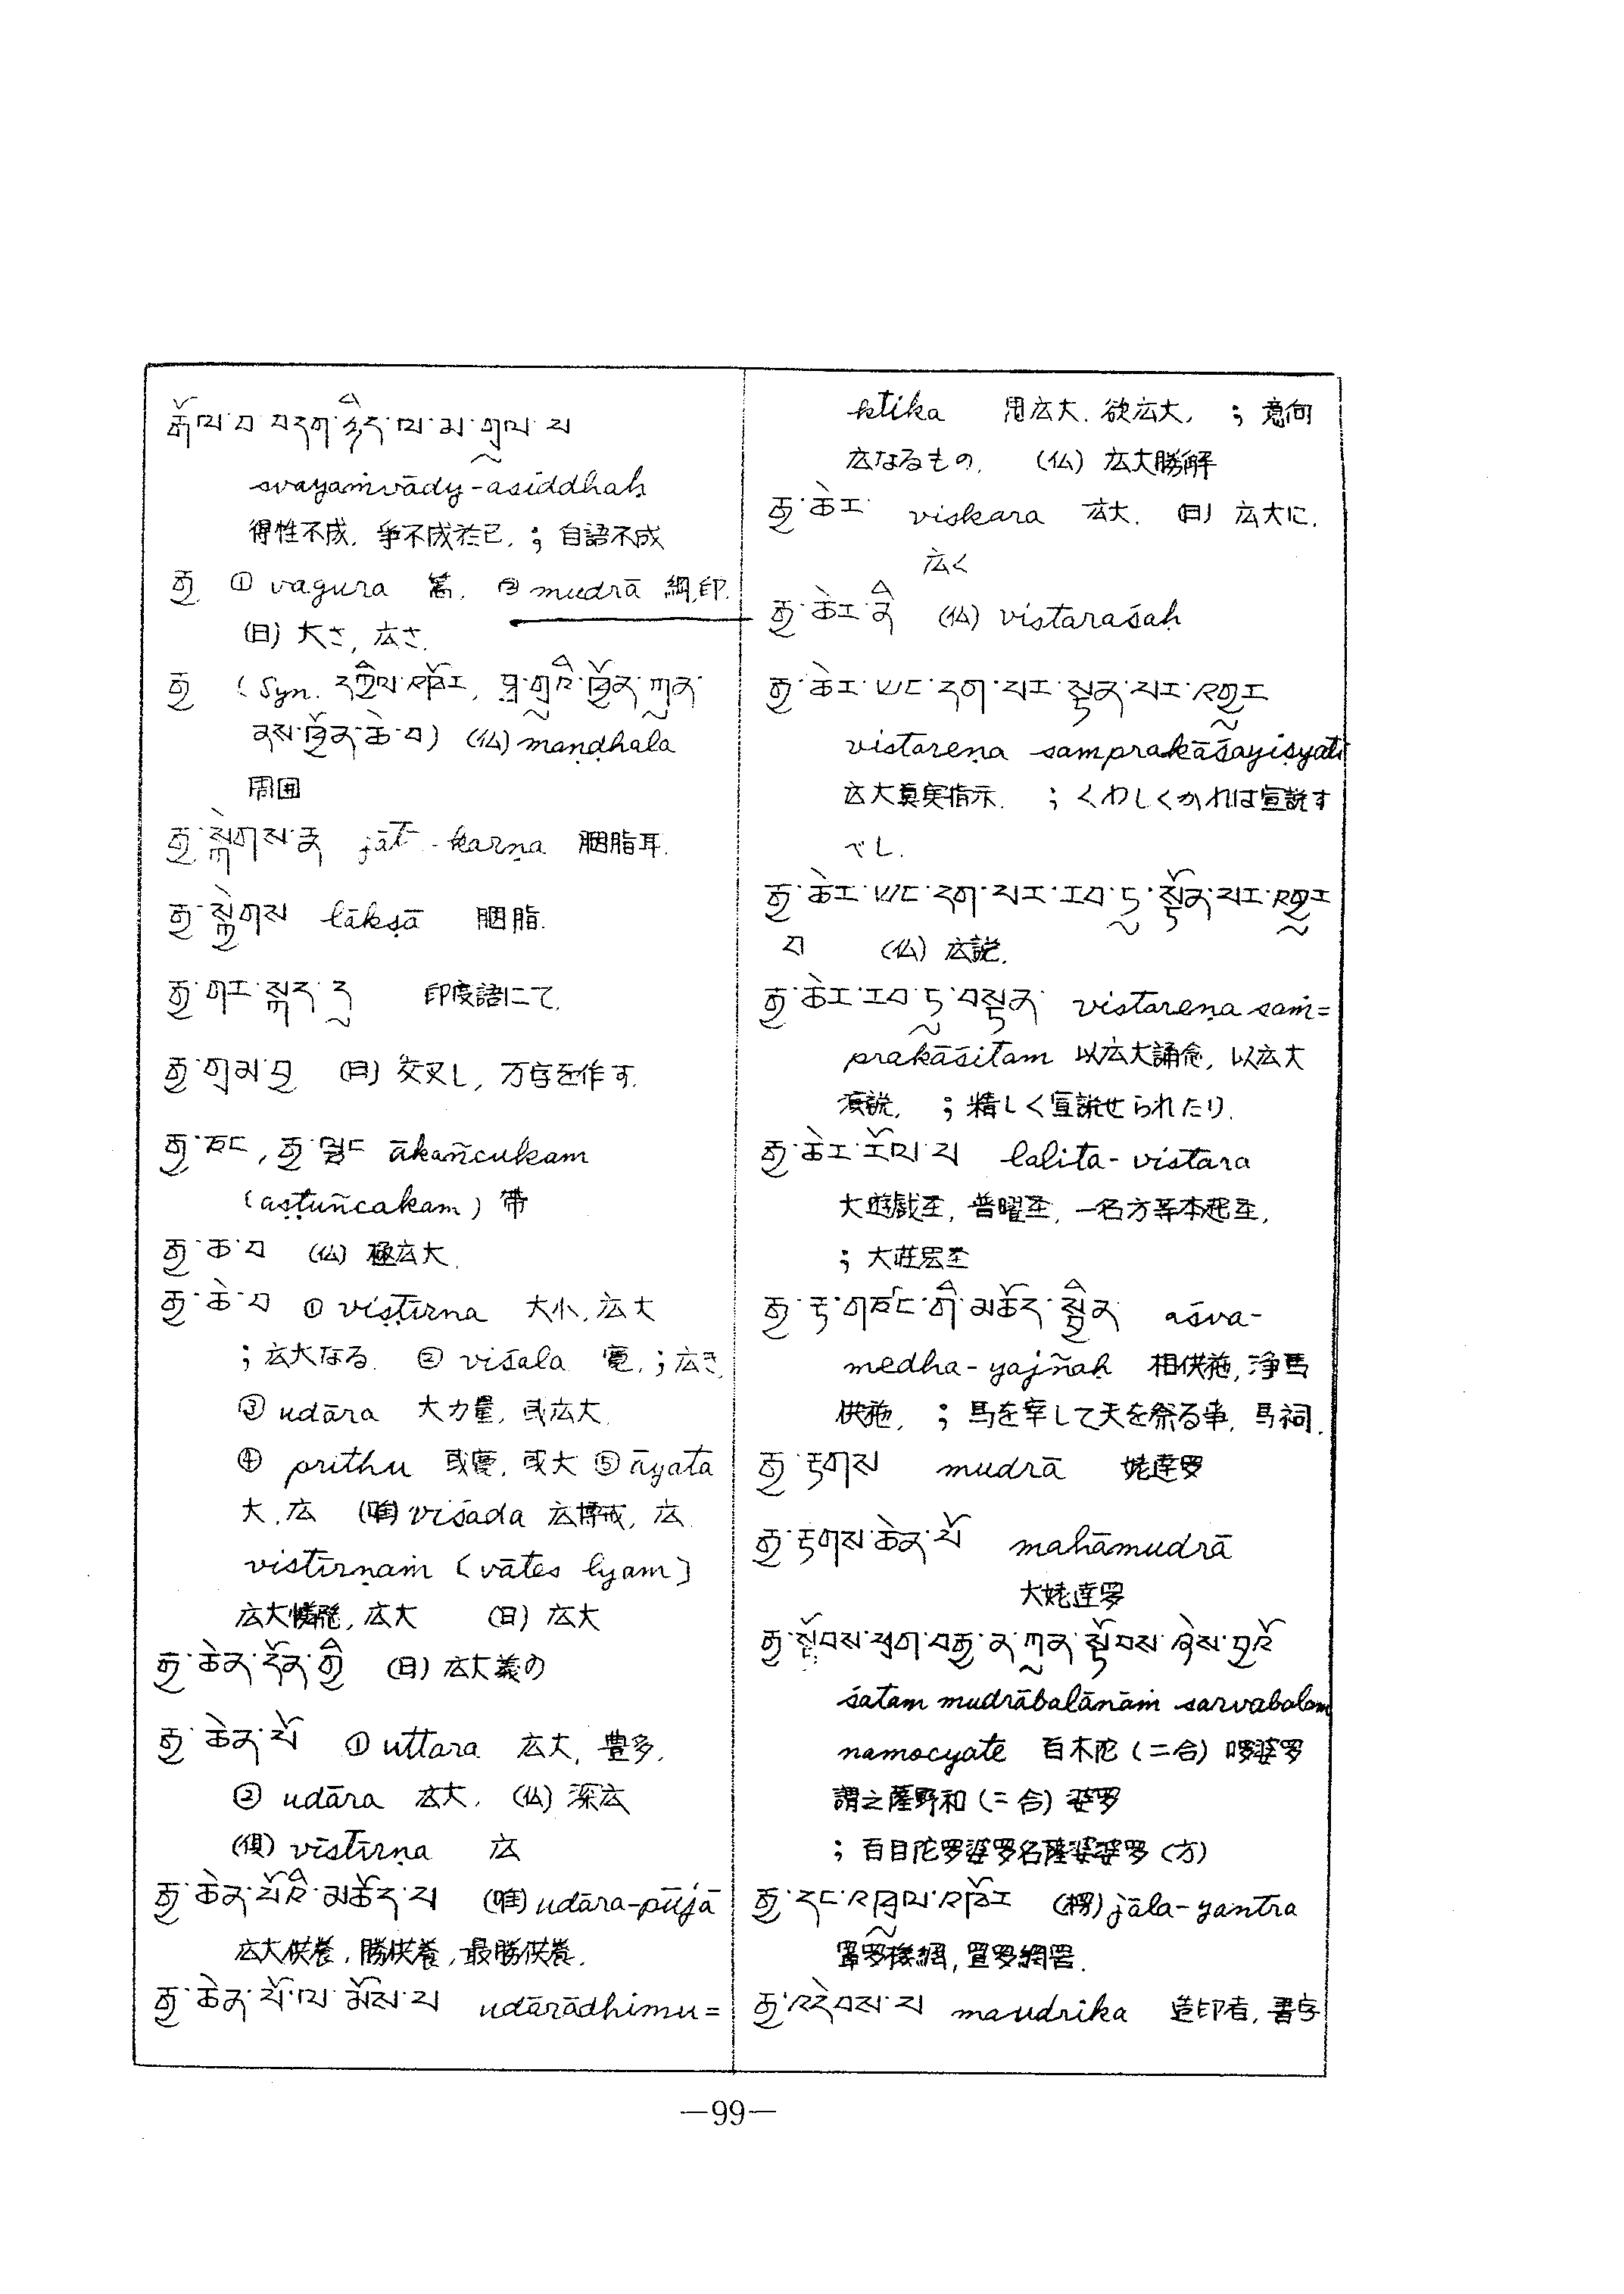 རྒོལ་བ་བདག་ཉིད་ལ་མ་གྲུབ་པ
svayaṁvādy-asiddhaḥ
得性不成, 爭不成於已, ; 自語不成
རྒྱ ① vagura 罵, ② mudrā 網,印.
(日) 大さ, 広さ.
རྒྱ (Syn. དཀྱིལ་འཁོར,
ནས་ཁྱོན་ཆེ་བ) (仏) maṇḍhala
周囲
རྒྱ་སྐྱེགས་རྣ jāt-karṇa 胭脂耳.
རྒྱ་སྐྱེགས lākṣā 胭脂.
རྒྱ་གར་སྐད་དུ 印度語にて.
རྒྱ་གྲམ་བྱ (日) 交叉し, 万字を作す.
རྒྱ་ཆང, རྒྱ་ ākañcukam
(aṣṭuñcakam) 帶
རྒྱ་ཆ་བ (仏) 極広大.
རྒྱ་ཆེ་བ ① viṣṭīrna 大小, 広大
; 広大なる. ② viśala 寛, ; 広き.
③ udāra 大力量, 或広大.
④ prithu 或慶, 或大 ⑤ āyata
大, 広 viśada 広博戒, 広.
vistīrṇaṁ (vātes lyam)
広大憐愍, 広大 (日) 広大
རྒྱ་ཆེན་དོན་གྱི (日) 広大義の
རྒྱ་ཆེན་པོ ① uttara 広大, 豊多.
② udāra 広大. (仏) 深広
(倶) vīstīrṇa 広
རྒྱ་ཆེན་པོའི་མཆོད་པ udāra-pūjā
広大供養, 勝供養, 最勝供養.
རྒྱ་ཆེན་པོ་ལ་མོས་པ udārādhimu=
ktika 思広大. 欲広大, ; 意向
広なるもの. (仏) 広大勝解
རྒྱ་ཆེར viskara 広大. (日) 広大に.
広く
རྒྱ་ཆེར་ནི (仏) vistaraśaḥ
རྒྱ་ཆེར་ཡང་དག་པར་སྟན་པར་འགྱུར
vistareṇa samprakāśayiṣyati
広大真実指示. ; くわしくかれは宣説す
べし.
རྒྱ་ཆེར་ཡང་དག་པར་རབ་ཏུ་སྟོན་པར་འགྱུར
བ (仏) 広説.
རྒྱ་ཆེར་རབ་ཏུ་བསྟན vistareṇa saṁ=
prakāśitam 以広大誦念, 以広大
演説. ; 精しく宣説せられたり.
རྒྱ་ཆེར་རོལ་པ lalita-vistara
大遊戯圣, 普曜圣, 一名方等本起圣,
; 大荘厳圣
རྒྱ་རྟ་གཙང་གི་མཆོད་སྦྱིན aśva-
medha-yajñaḥ 相供施, 淨馬
供施. ; 馬を宰して天を祭る事, 馬祠.
རྒྱ་རྟགས mudrā 姥達罗
རྒྱ་རྟགས་ཆེན་པོ mahāmudrā
大姥達罗
རྒྱ་སྟོབས་ཕྲག་བརྒྱ་ན་ཀུན་སྟོབས་ཞེས་བྱའོ
śatam mudrābalānāṁ sarvabalam
namocyate 百木陀 (二合) 囉婆罗
謂之薩野和 (二合) 婆罗
; 百目陀罗婆罗名薩婆婆罗 (方)
རྒྱ་དང་འཁྲུལ་འཁོར (楞) jāla-yantra
罥罗機網, 罝罗網罟.
རྒྱ་འདེབས་པ maudrika 造印者, 書字
—99—